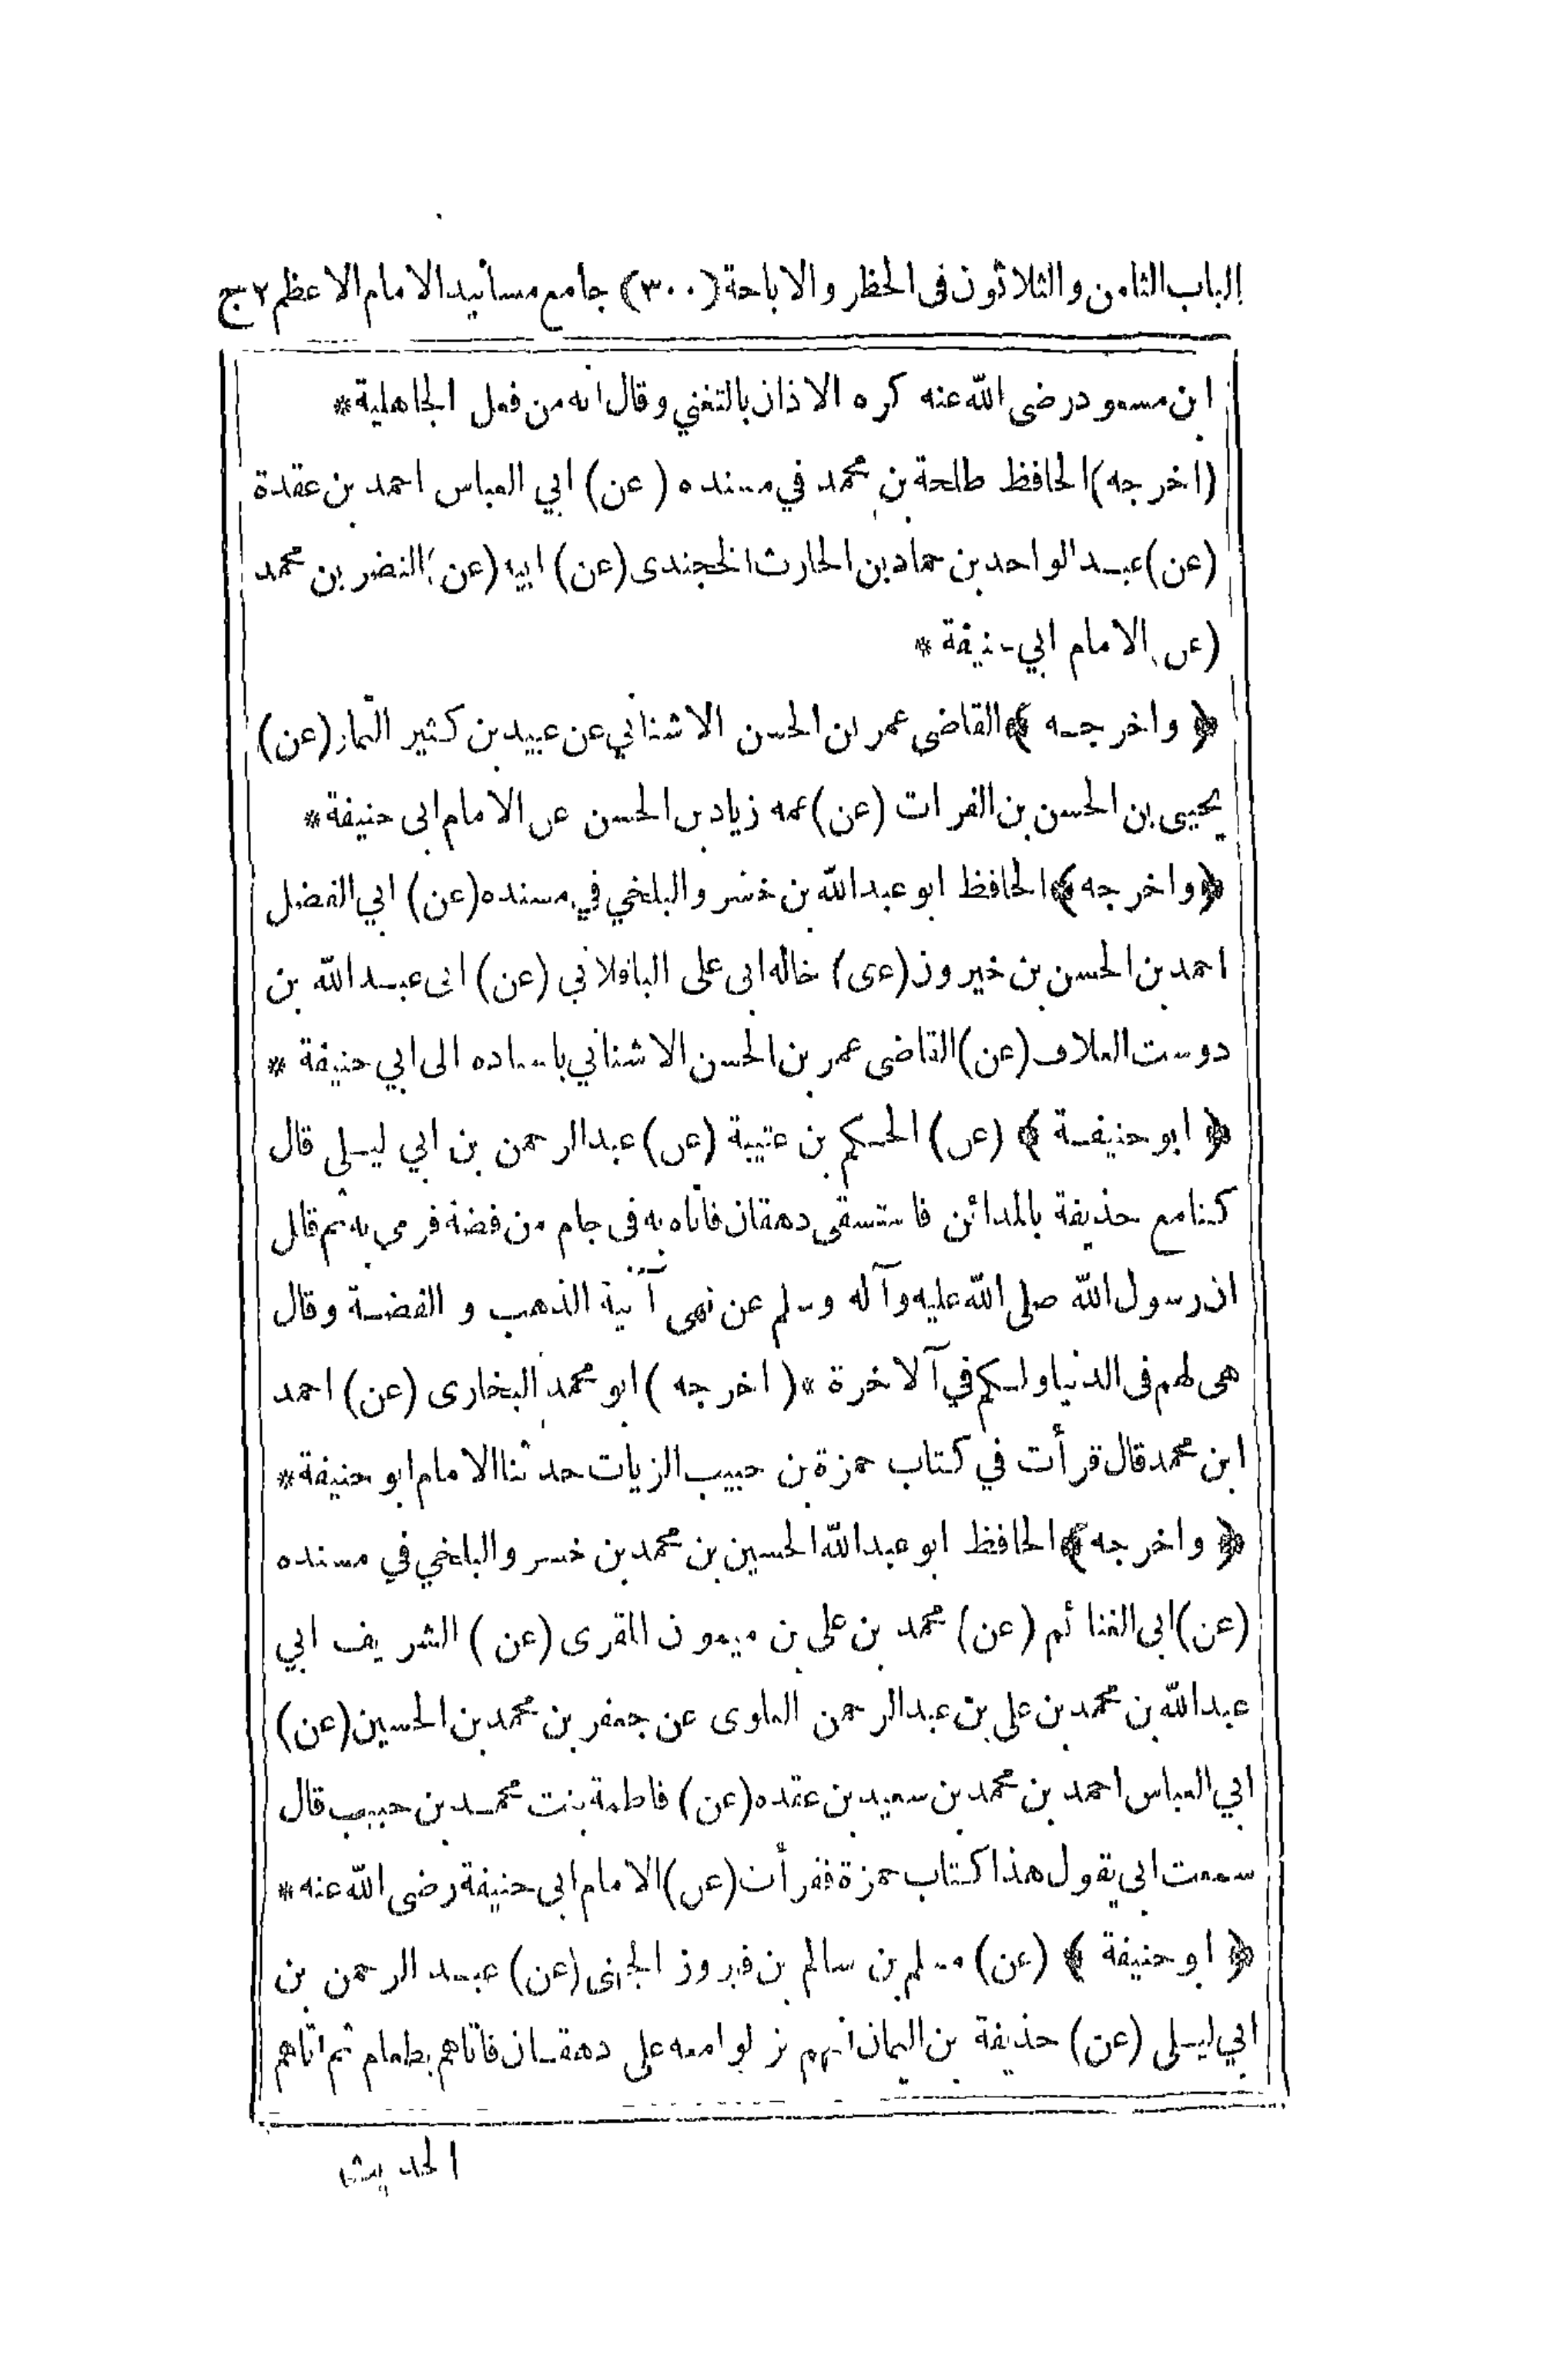 الباب الثامن والثلاثون فى الحظر والاباحة (٣٠٠) جامع مسانيد الامام الاعظم ٢ج
ابن مسعود رضى الله عنه كره الاذان بالتغني وقال انه من فعل الجاهلية*
(اخرجه) الحافظ طلحة بن محمد في مسنده (عن) ابي العباس احمد بن عقدة
(عن) عبد الواحد بن حماد بن الحارث الخجندى (عن) ابيه (عن) النضر بن محمد
(عن) الامام ابي حنيفة *
﴿ واخرجه ﴾ القاضى عمر بن الحسن الاشناني عن عبيد بن كثير التمار (عن)
يحيى بن الحسن بن الفرات (عن) عمه زياد بن الحسن عن الامام ابى حنيفة*
﴿ واخرجه ﴾ الحافظ ابو عبد الله بن خسرو البلخي في مسنده (عن) ابي الفضل
احمد بن الحسن بن خيرون (عن) خاله ابى على الباقلاني (عن) ابى عبد الله بن
دوست العلاف (عن) القاضى عمر بن الحسن الاشناني باسناده الى ابي حنيفة *
﴿ ابو حنيفة ﴾ (عن) الحكم بن عتيبة (عن) عبد الرحمن بن ابي ليلى قال
كنا مع حذيفة بالمدائن فاستسقى دهقان فاتاه به فى جام من فضة فرمى به ثم قال
ان رسول الله صلى الله عليه وآله وسلم عن نهى آنية الذهب و الفضة وقال
هى لهم فى الدنيا ولكم في آلاخرة *( اخرجه ) ابو محمد البخارى (عن) احمد
ابن محمد قال قرأت في كتاب حمزة بن حبيب الزيات حدثنا الامام ابو حنيفة*
﴿ واخرجه ﴾ الحافظ ابو عبد الله الحسين بن محمد بن خسرو البلخي في مسنده
(عن) ابى الغنائم (عن) محمد بن على بن ميمون المقرى (عن ) الشريف ابي
عبد الله بن محمد بن على بن عبد الرحمن العلوى عن جعفر بن محمد بن الحسين (عن)
ابي العباس احمد بن محمد بن سعيد بن عقده (عن) فاطمة بنت محمد بن حبيب قال
سمعت ابى يقول هذا كتاب حمزة فقرأت (عن) الامام ابى حنيفة رضى الله عنه *
﴿ ابو حنيفة ﴾ (عن) مسلم بن سالم بن فيروز الجهنى (عن) عبد الرحمن بن
ابي ليلى (عن) حذيفة بن اليمان انهم نزلوا معه على دهقان فاتاهم بطعام ثم اتاهم
الحديث